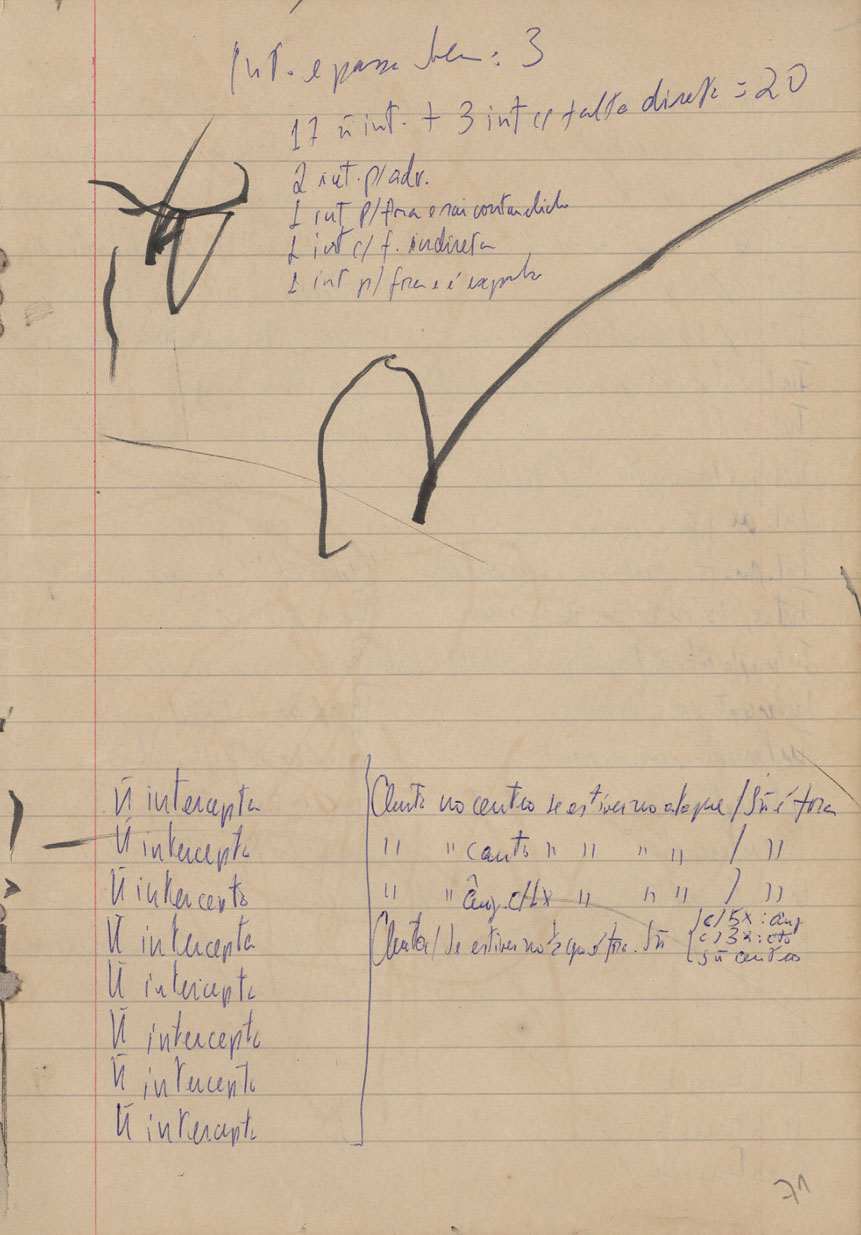 Int. e passa bem: 3
17 ñ int. + 3 int c/ falta direta = 20
2 int. p/adv.
1 int p/fora e sai contundido
1 int c/ f. indireta
1 int p/ fora e é expulso
Ñ intercepta
Ñ intercepta
Ñ intercepta
Ñ intercepta
Ñ intercepta
Ñ intercepta
Ñ intercepta
Ñ intercepta
Chuta no centro se estiver no ataque / Sñ é fora
" " canto " " " " / "
" " âng. c/1x " " " / "
Chuta / Se estiver no é fora. Sñ
c/5x: âng
c/3x: cto
Sñ centro
71